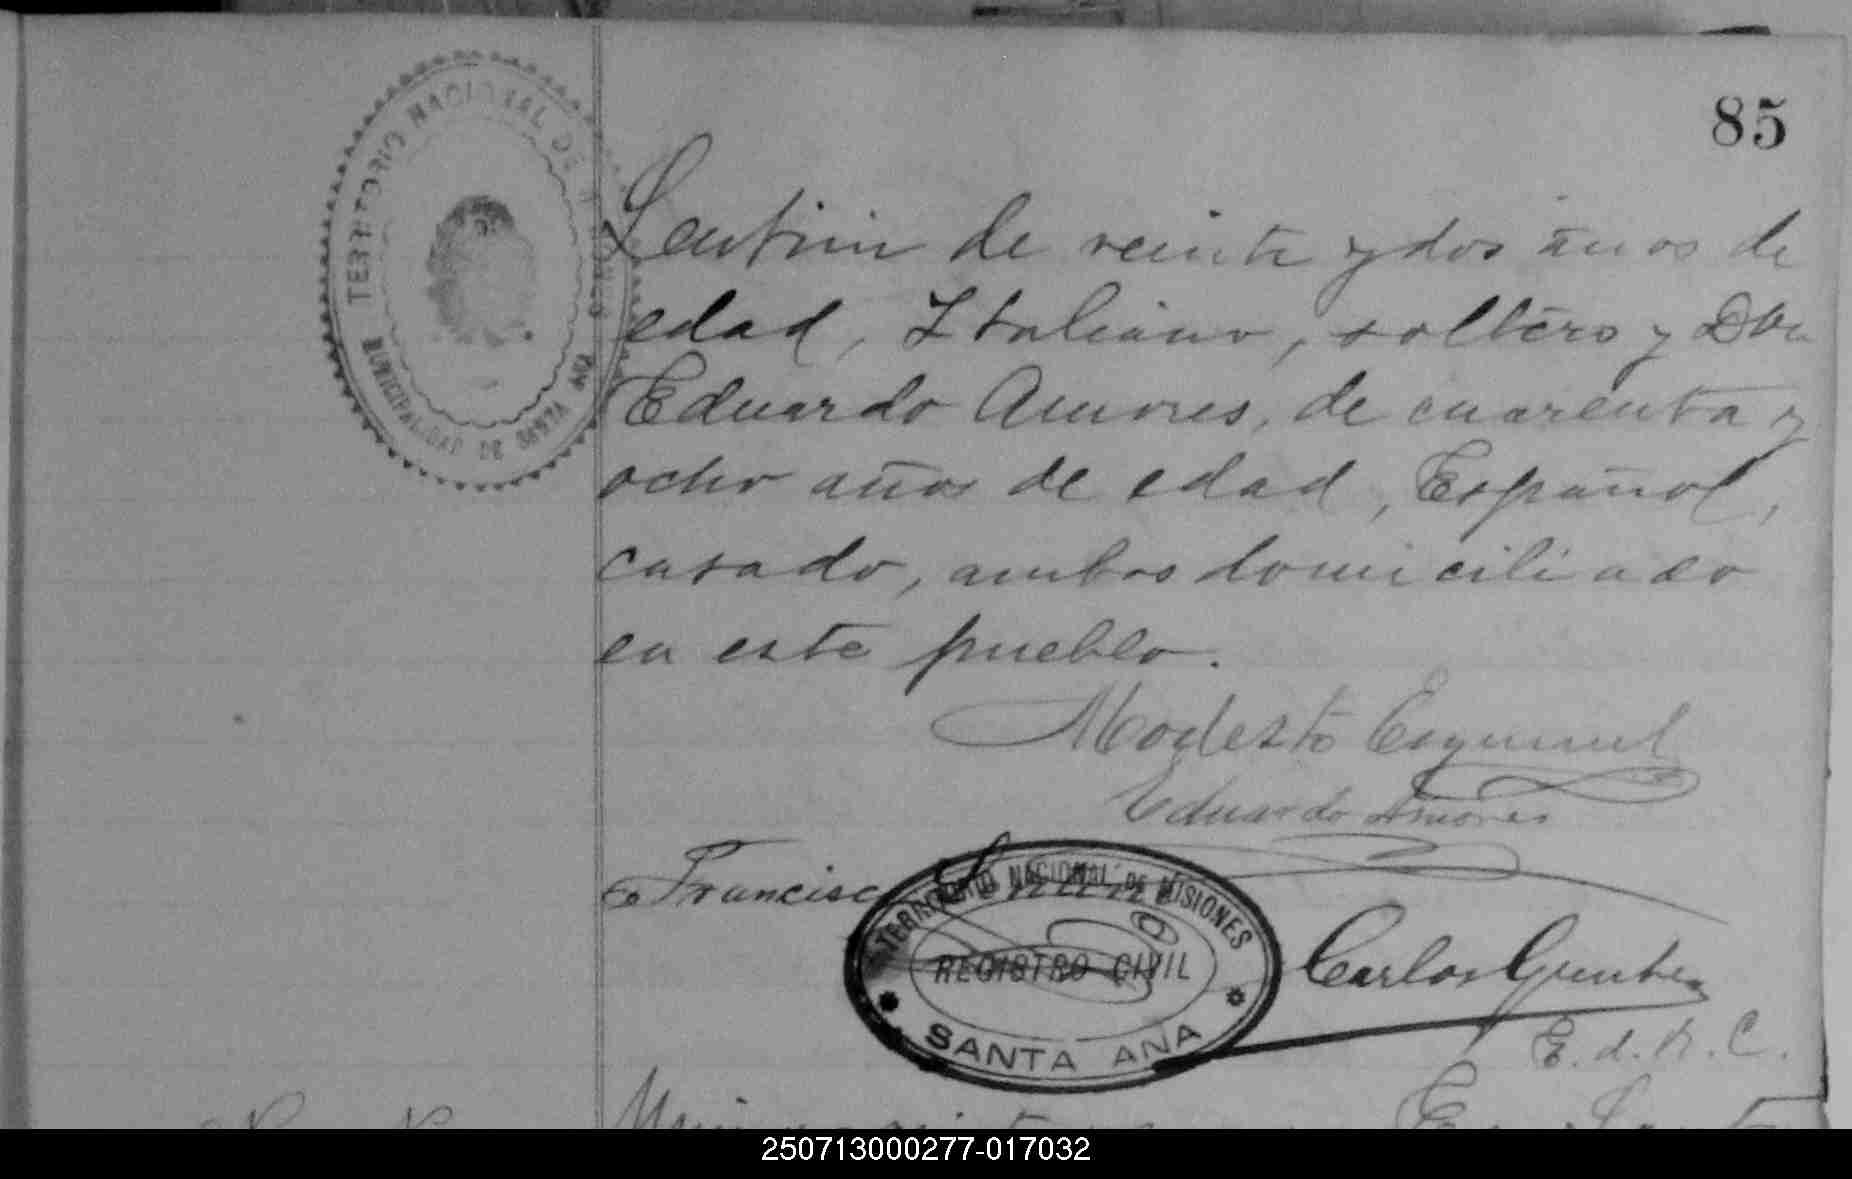 85
TERRITORIO NACIONAL DE MISIONES
MUNICIPALIDAD DE SANTA ANA
de veinte y dos años de
edad, Italiano, soltero y Don
Eduardo Amores, de cuarenta y
ocho años de edad, Español,
casado, ambos domiciliado
en este pueblo.
Modesto
Eduardo Amores
Francisco
TERRITORIO NACIONAL DE MISIONES
REGISTRO CIVIL
SANTA ANA
Carlos
E. d. R. C.
250713000277-017032